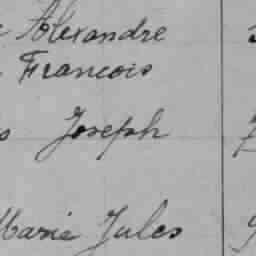 Alexandre
Francois
Joseph
Marie Jules